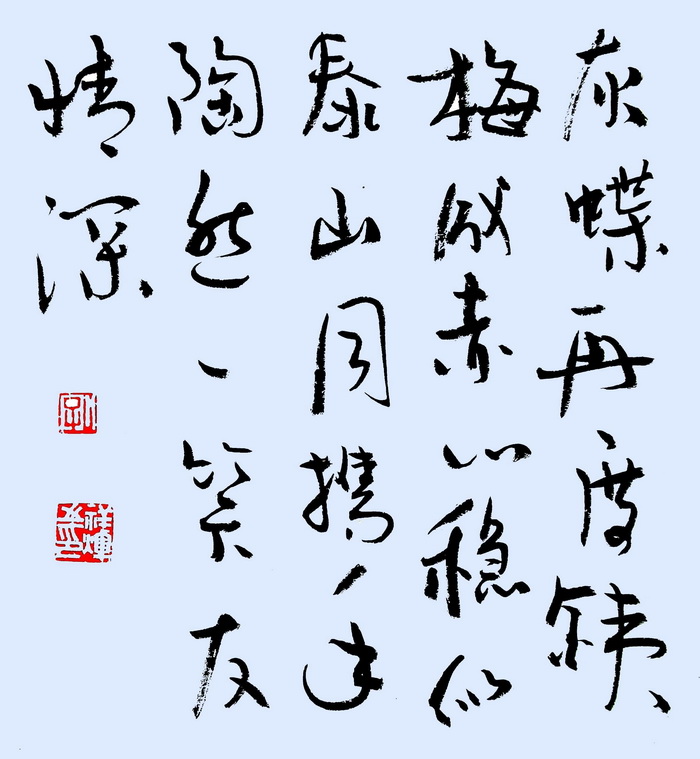 灰蝶再度鉄
梅成赤心稳似
泰山同携手
陶然一笑友
情深